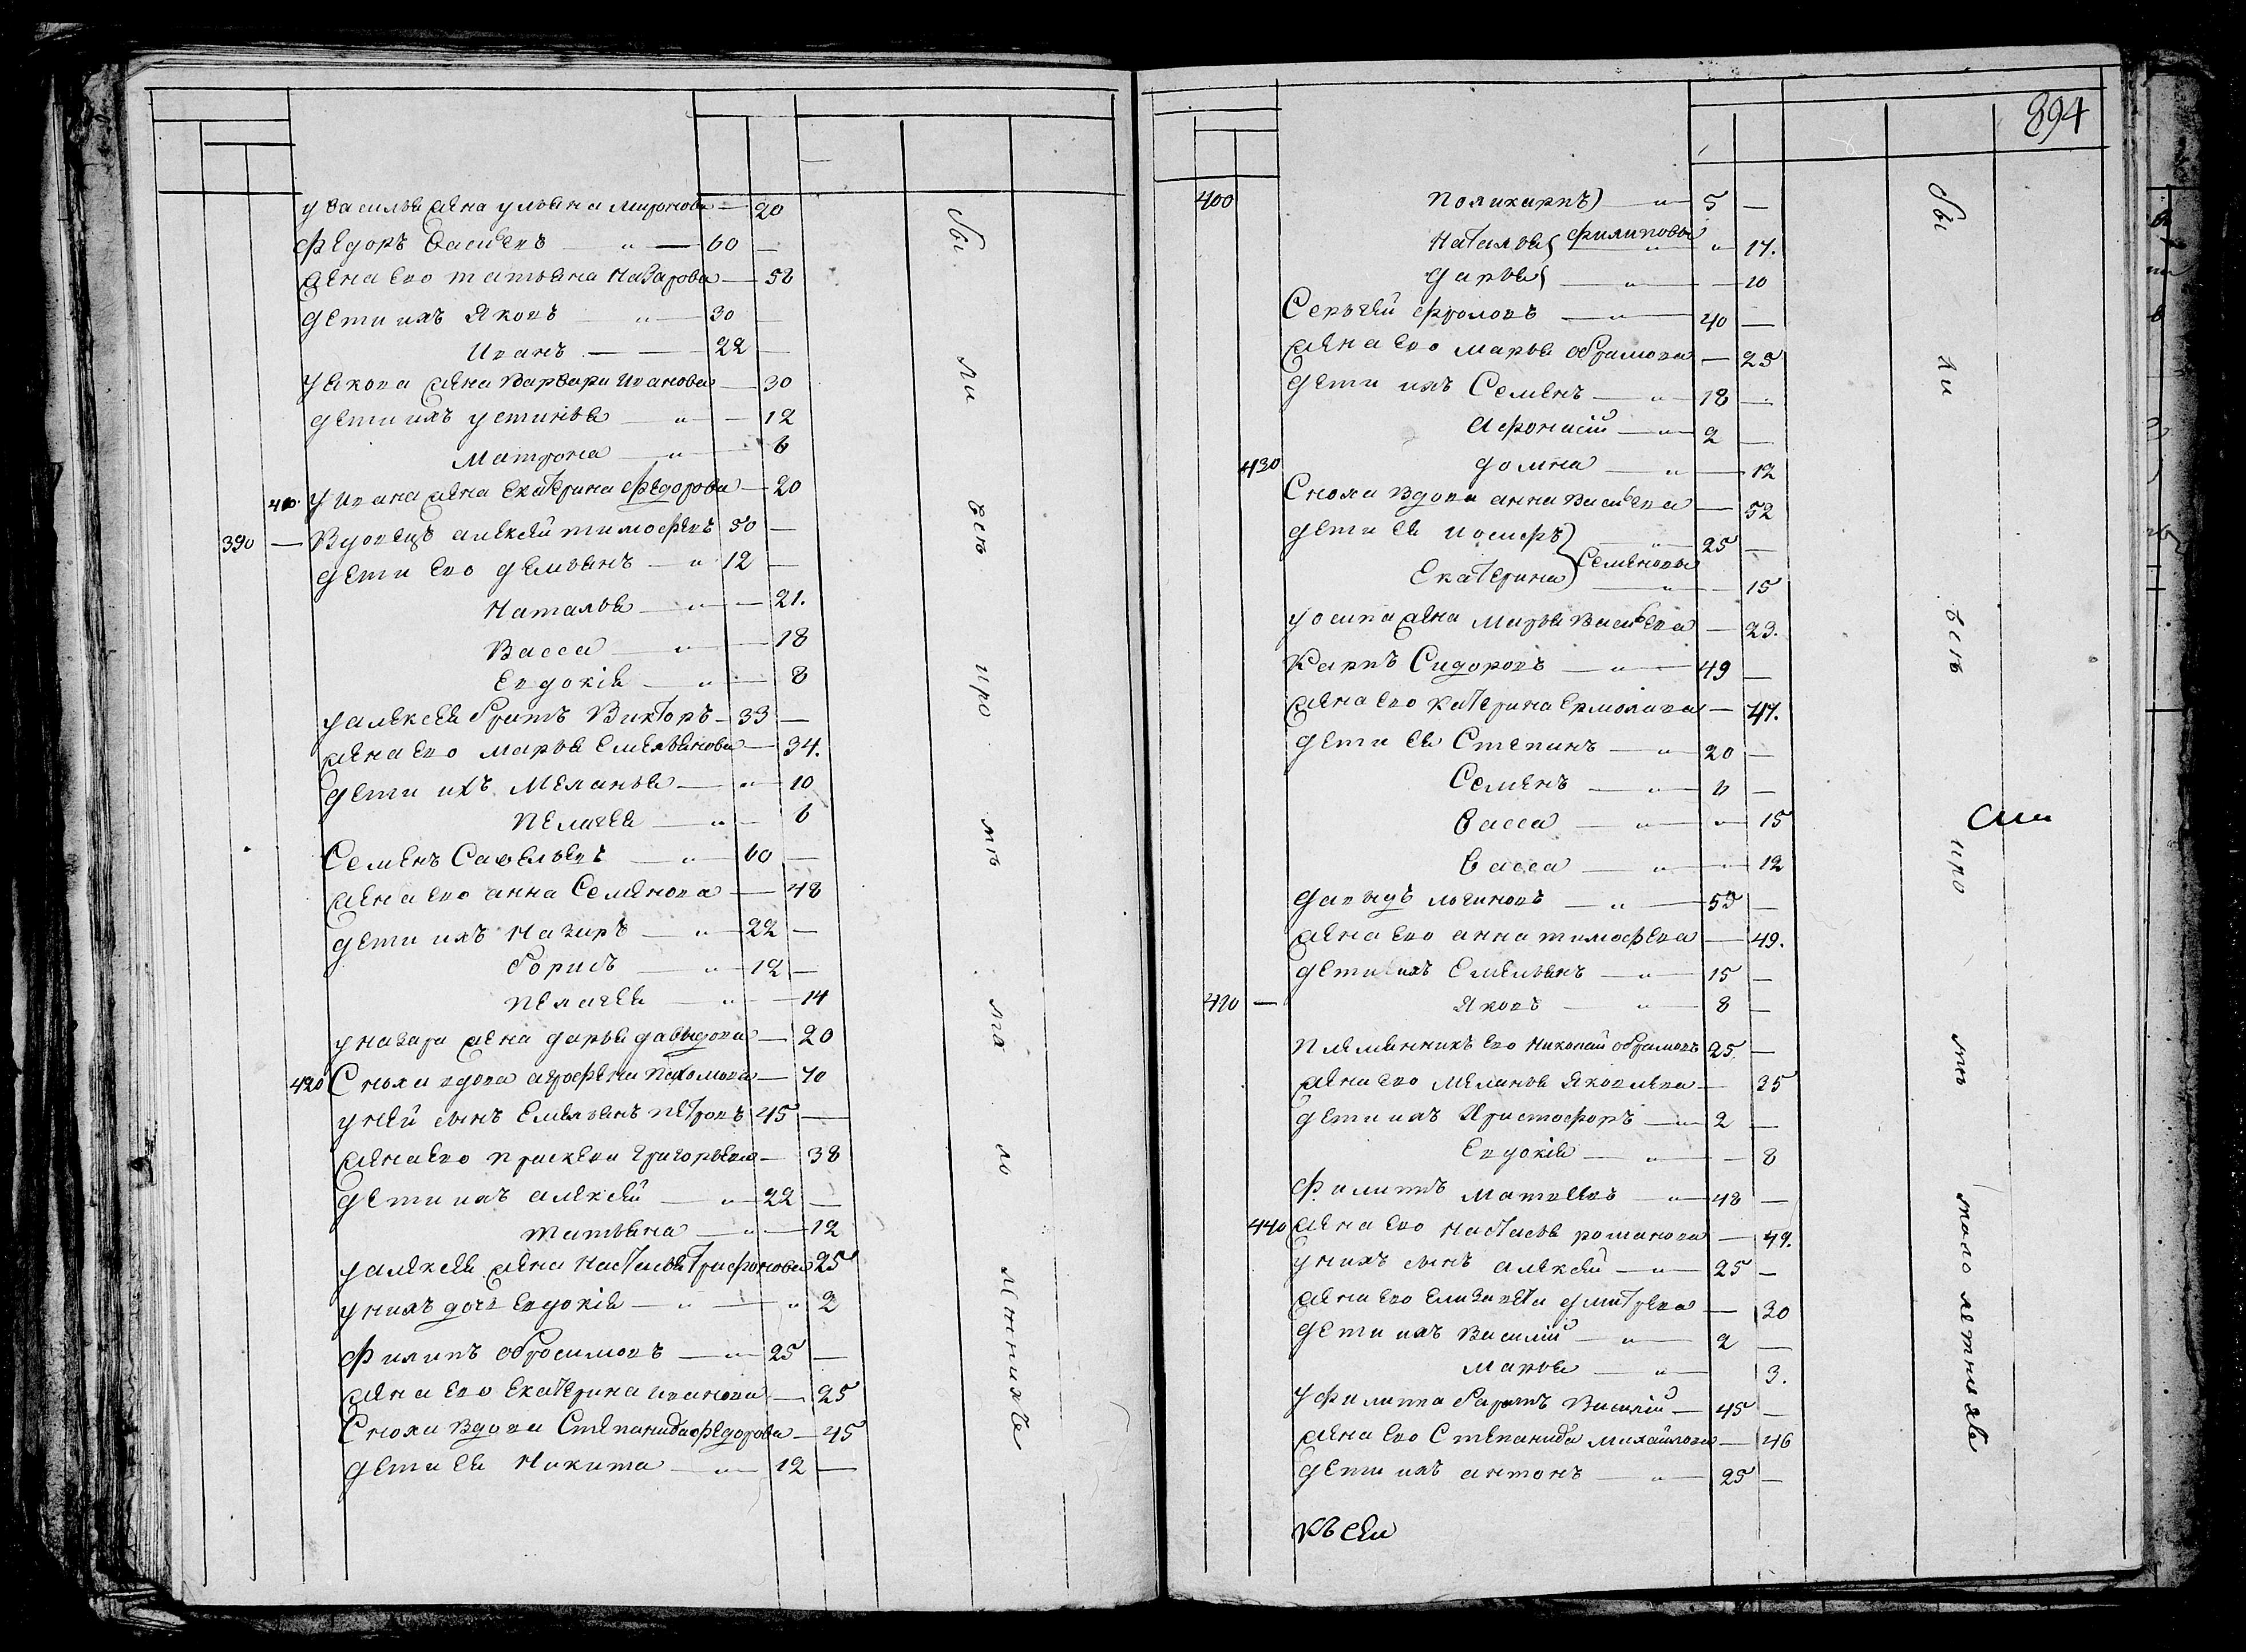 у василья жена ульяна миронова — 20
Федоръ Васильевъ — " — 60 —
жена ево татьяна Назарова — 58
дети ихъ Яковъ — " — 30 —
Иванъ — — 22 —
у Якова жена Варвара Иванова — 30
дети ихъ устинья — " — 12
Матрона — " — 6
410 у Ивана жена Екатерина Федорова — 20
390 — Вдовецъ алексей тимофеевъ 50 —
дети ево демьянъ — " 12 —
Наталья — " — 21.
Васса — " — 18
Евдокия — " — 8
у алексея братъ Викторъ — 33 —
жена ево марья Емельянова — 34.
дети ихъ Меланья — " — 10
Пелагея — " — 6
Семенъ Савельевъ — " — 60 —
жена ево анна Семенова — 48
дети ихъ Назаръ — " — 22 —
Борисъ — " — 12 —
Пелагея — " — 14
у назара жена дарья давыдова — 20
420 Сноха вдова агрофена Пахомова — 70
у ней сынъ Емельянъ Петровъ 45 —
жена ево прасковя григорьева — 38
дети ихъ алексей — " — 22 —
татьяна — " — 12
у алексея жена Настасья Трифонова 25
у нихъ дочь Евдокия — " — " 2
Филипъ обросимовъ — " — 25 —
жена ево Екатерина иванова — 25
Сноха Вдова Степанида федорова — 45
дети ея Никита — " — 12 —
бы ли всѣ про тѣ ма ло лѣтнихъ
894
400 Поликарпъ — " — 5 —
Наталья Филиповы " " 17.
дарья — " — 10
Сергей фроловъ — " — 40 —
жена ево марья обрамова — 25
дети ихъ Семенъ — " — 18 —
Афонасий — " — 2 —
430 домна — " — 12
Сноха вдова анна Васильева — 52
дети ея иосифъ — " — 25 —
Семеновы
Екатерина — " — 15
у осипа жена марья васильева — 23.
Карпъ Сидоровъ — " — 49 —
жена ево катерина Ермолаева — 47.
дети ея Степанъ — " — 20 —
Семенъ — " — 6 —
Васса — " — 15
Васса — " — 12
давыдъ логиновъ — " — 53 —
жена ево анна тимофеева — 49.
дети ихъ Емельянъ — " — 15 —
420 — Яковъ — " — 8 —
племянникъ ево николай обрамовъ 25. —
жена ево меланья яковлева — 25
дети ихъ Христофоръ — " — 2 —
Евдокия — " — 8
Филиппъ матвеевъ — " — 48 —
440 жена ево настасья романова — 49.
у нихъ сынъ алексей — " — 25 —
жена ево Елизавета дмитрева — 30
дети ихъ василий — " — 2 —
марья — " — 3.
у Филиппа братъ василий — 45 —
жена ево Степанида михайлова — 46
дети ихъ антонъ — " — 25 —
бы ли всѣ про тѣ мало летняхъ
къ сей